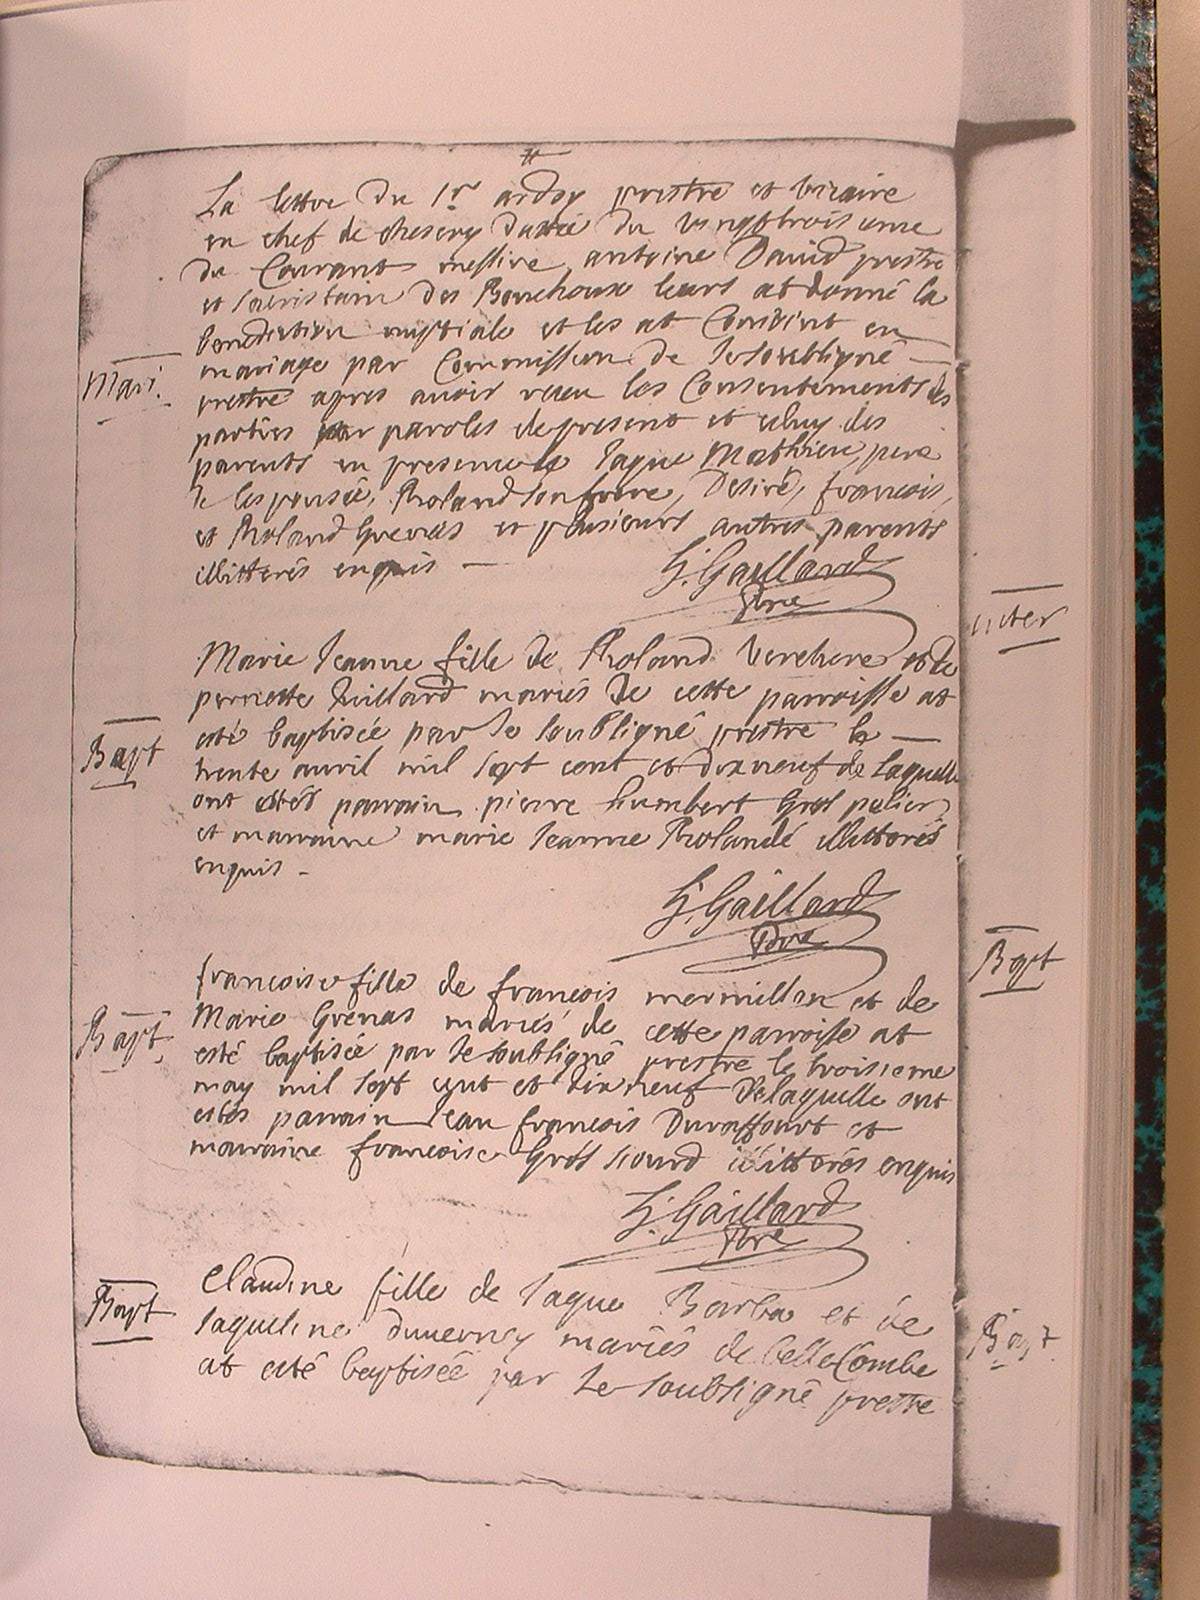 La lettre du Sr ardoy prestre et viccaire
en chef de chesery dattée du vingttrois ieme
du Courant messire antoine David prestre
et sacristain des Bouchoux leurs at donné la
benediction nuptiale et les at Conioint en
Mari.
mariage par Commission de le soubsigné
prestre apres avoir receu les Consentements des
parties par paroles de present et celuy des
parents en presence de Jaque Mathieu pere
de lespousée, Roland son frere, Desiré, francois,
et Roland Grenas et plusieurs autres parents
illitterés enquis
G. Gaillard
pbre
enter
Marie Jeanne fille de Roland Verchere et de
pernette Juillard mariés de cette parroisse at
Bapt
esté baptisée par le soubsigné prestre le
trente avril mil sept cent et dixneuf de laquelle
ont estés parrain pierre humbert Gros pelier
et marraine marie Jeanne Rolandé illitterés
enquis
G. Gaillard
pbre
Bapt
francoise fille de francois mermillon et de
Marie Grenas mariés de cette parroisse at
Bapt
esté baptisée par le soubsigné prestre le troisieme
may mil sept cent et dix neuf de laquelle ont
estés parrain Jean francois Duraffourt et
marraine francoise Gros illitterés enquis
G. Gaillard
pbre
Claudine fille de Jaque Barba et de
Bapt
Jaqueline duverney mariés de BelleCombe
Bapt
at esté baptisée par le soubsigné prestre